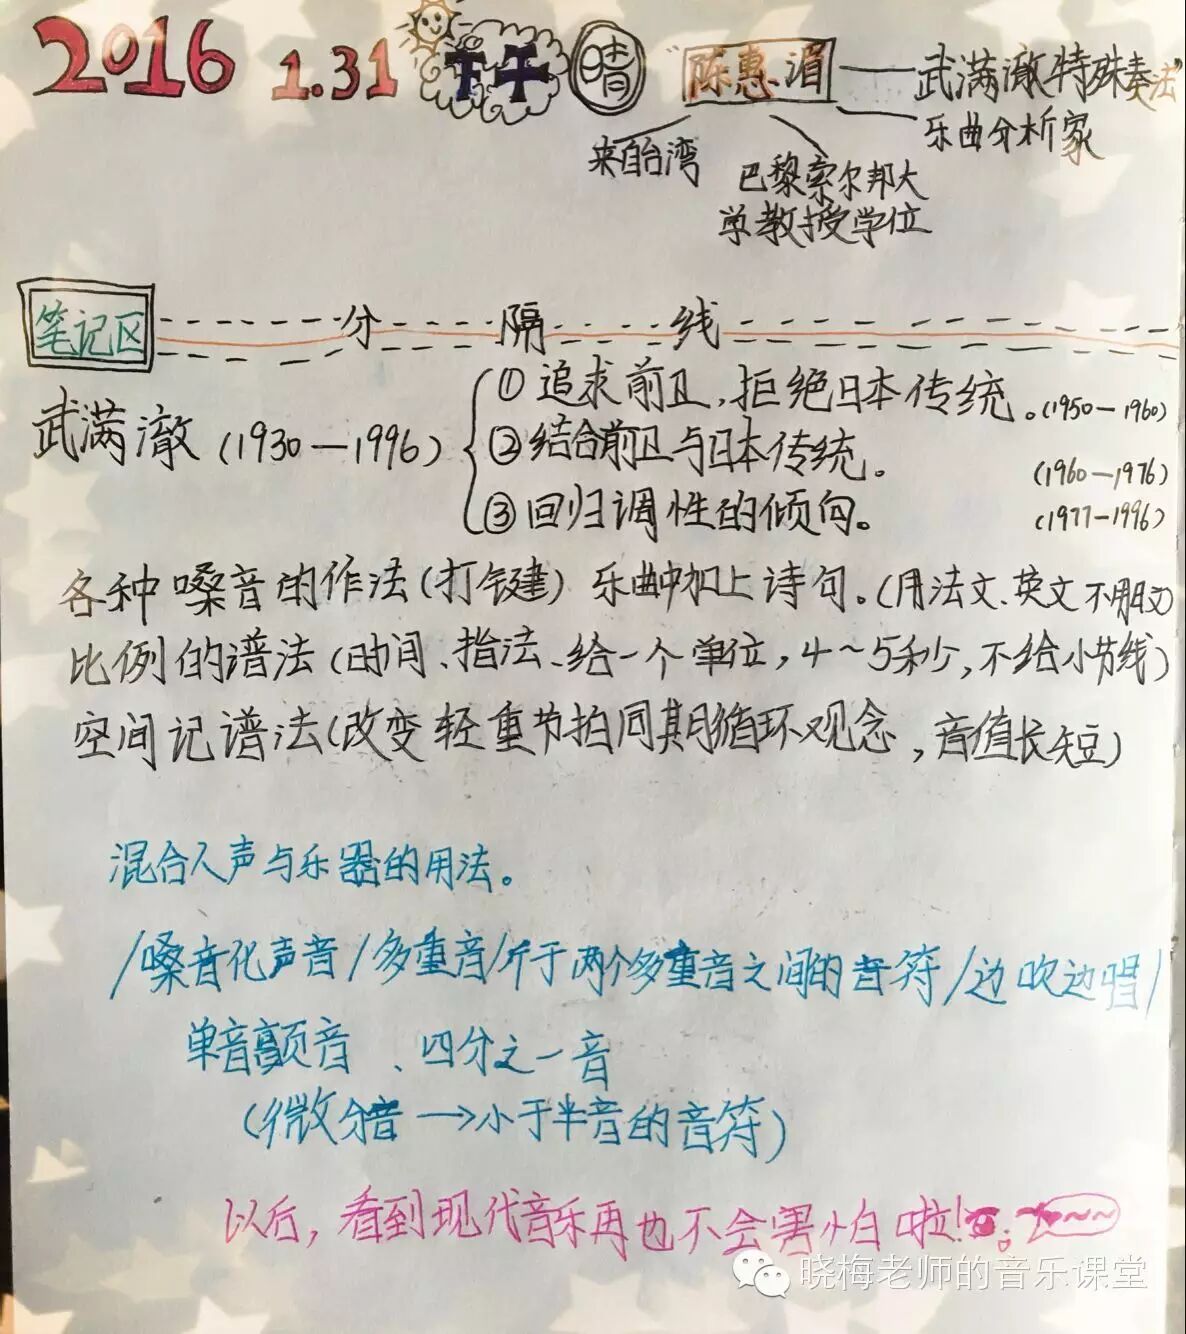 2016 1.31 下午 晴 "陈惠湄——武满徹特殊奏法"
乐曲分析家
来自台湾
巴黎索尔邦大
学教授学位
笔记区 分隔线
武满澈(1930—1996)
①追求前卫,拒绝日本传统。(1950—1960)
②结合前卫与日本传统。(1960—1976)
③回归调性的倾向。(1977-1996)
各种嗓音的作法(打键) 乐曲中加上诗句。(用法文、英文不用日文)
比例的谱法(时间、指法、给一个单位,4~5秒,不给小节线)
空间记谱法(改变轻重节拍同期循环观念,音值长短)
混合人声与乐器的用法。
/嗓音化声音/多重音/介于两个多重音之间的音符/边吹边唱/
单音颤音、四分之一音
(微分音→小于半音的音符)
以后,看到现代音乐再也不会害怕啦!
晓梅老师的音乐课堂